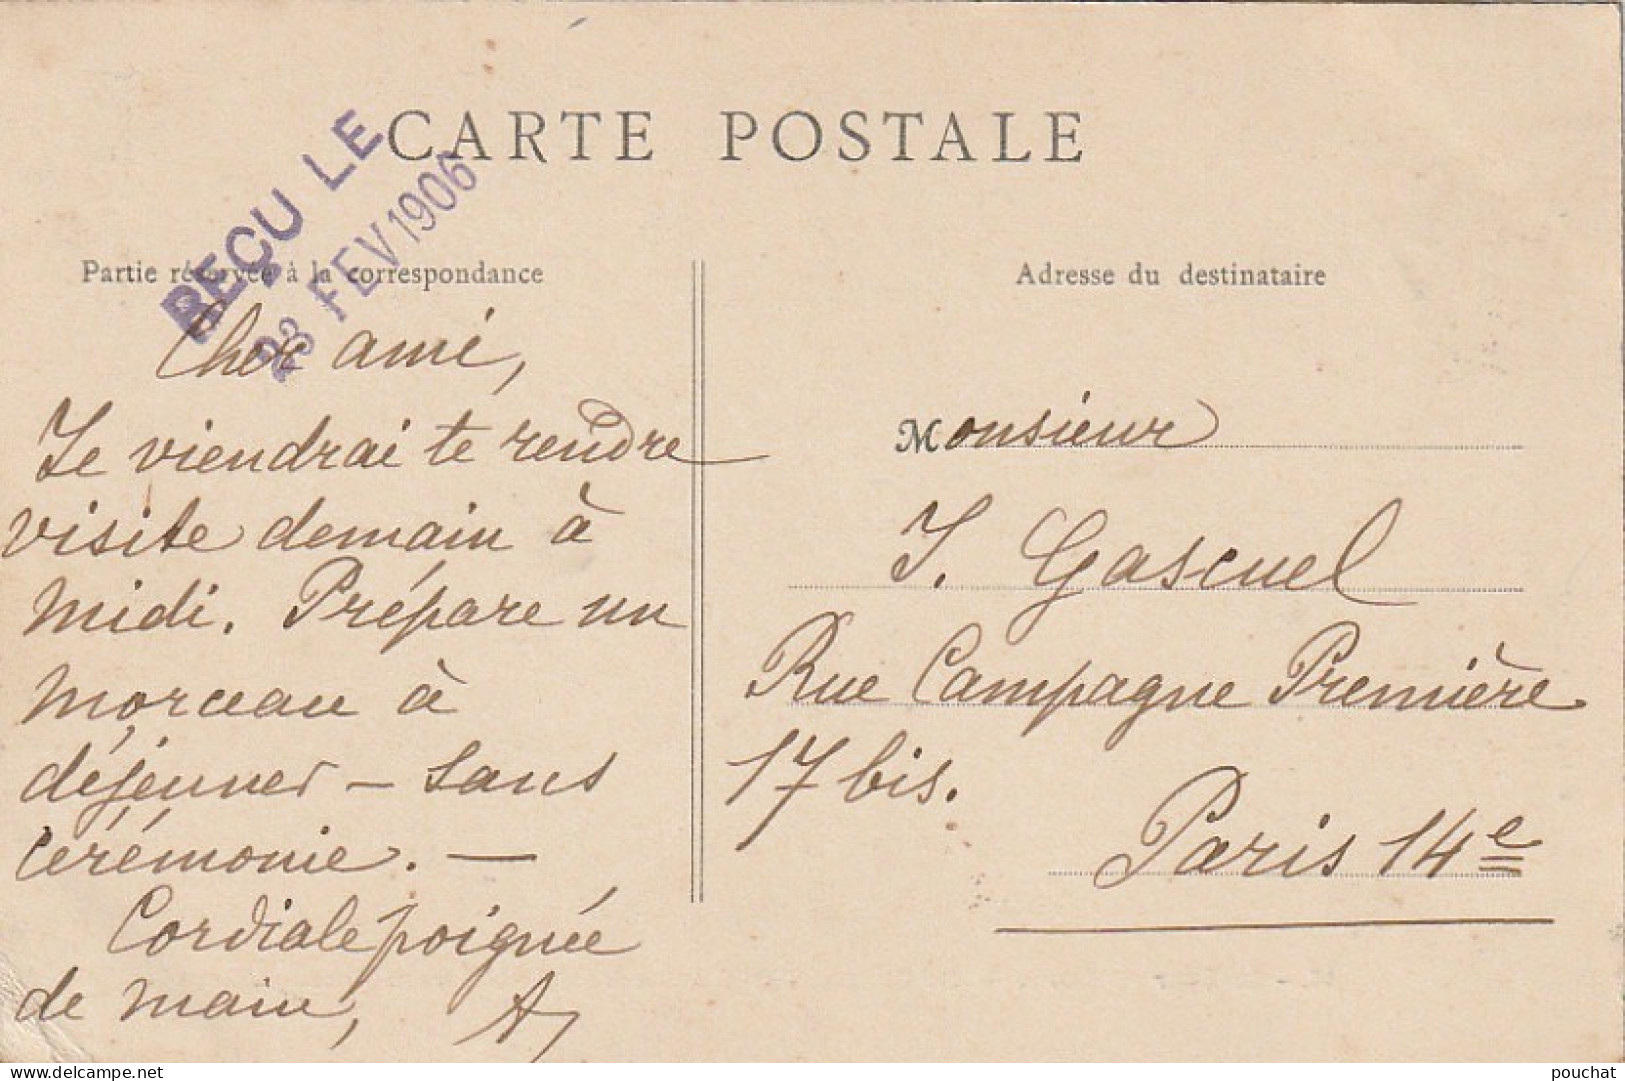 CARTE POSTALE
REÇU LE
23 FEV 1906
Partie réservée à la correspondance
Cher ami,
Je viendrai te rendre
visite demain à
midi. Prépare un
morceau à
déjeuner — sans
cérémonie. —
Cordiale poignée
de main, A,
Adresse du destinataire
Monsieur
J. Gascuel
Rue Campagne Première
17 bis.
Paris 14e
www.delcampe.net
pouchat